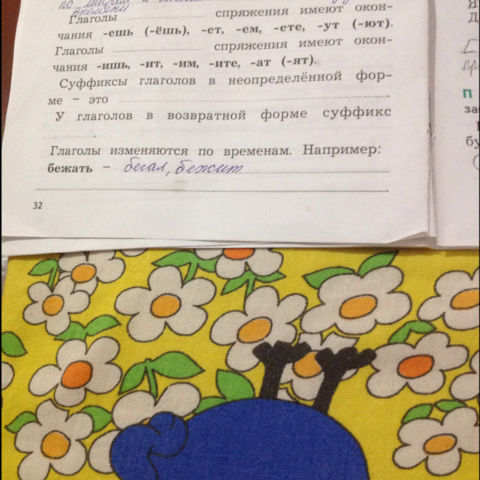 по
временам
Глаголы спряжения имеют окон-
чания -ешь (-ёшь), -ет, -ем, -ете, -ут (-ют).
Глаголы спряжения имеют окон-
чания -ишь, -ит, -им, -ите, -ат (-ят).
Суффиксы глаголов в неопределённой фор-
ме – это
У глаголов в возвратной форме суффикс
.
Глаголы изменяются по временам. Например:
бежать – бегал, бежит
32
П
за
бу